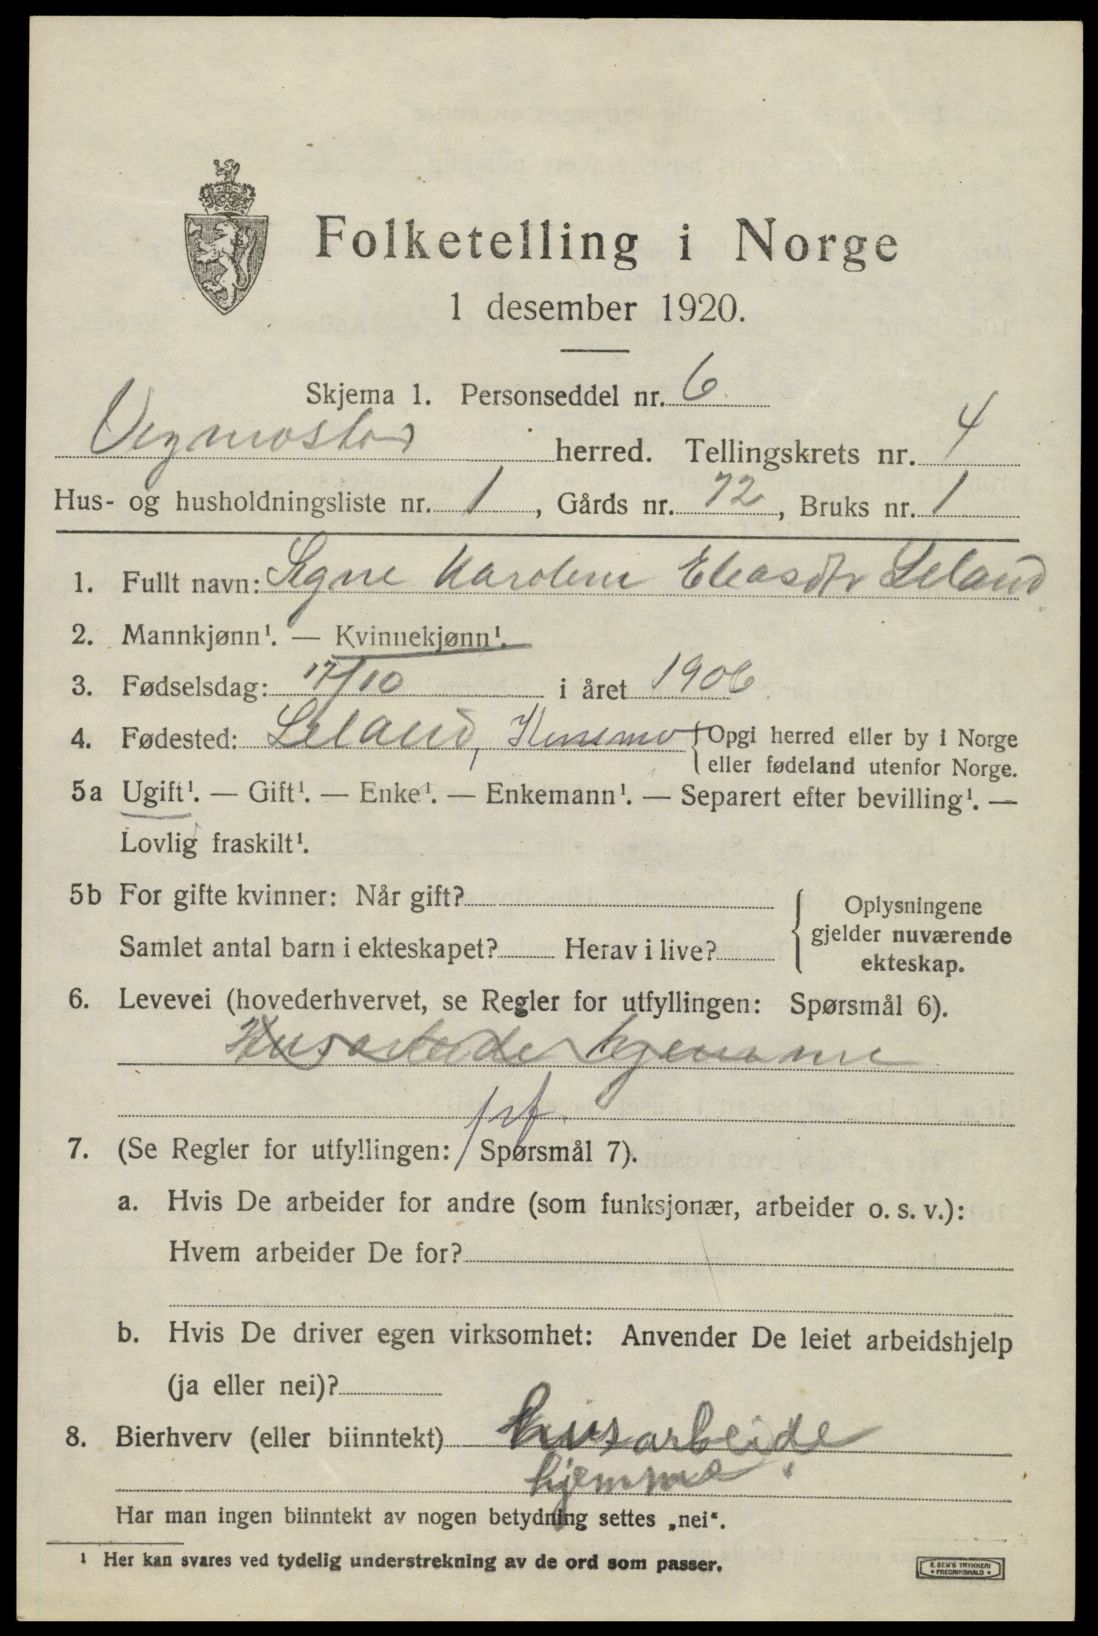 Folketelling i Norge
1 desember 1920.
Skjema 1. Personseddel nr. 6
Vegmostad herred. Tellingskrets nr. 4
Hus- og husholdningsliste nr. 1, Gårds nr. 72, Bruks nr. 1
1. Fullt navn: Signe Karoline Eleasdtr Leland
2. Mannkjønn¹. — Kvinnekjønn¹.
3. Fødselsdag: 17/10 i året 1906
4. Fødested: Leland, {Opgi herred eller by i Norge
eller fødeland utenfor Norge.
5a Ugift¹. — Gift¹. — Enke¹. — Enkemann¹. — Separert efter bevilling¹. —
Lovlig fraskilt¹.
5b For gifte kvinner: Når gift? Oplysningene
Samlet antal barn i ekteskapet? Herav i live? gjelder nuværende
ekteskap.
6. Levevei (hovederhvervet, se Regler for utfyllingen: Spørsmål 6).
Husarbeide hjemme
7. (Se Regler for utfyllingen: Spørsmål 7).
a. Hvis De arbeider for andre (som funksjonær, arbeider o. s. v.):
Hvem arbeider De for?
b. Hvis De driver egen virksomhet: Anvender De leiet arbeidshjelp
(ja eller nei)?
8. Bierhverv (eller biinntekt) husarbeide
hjemme
Har man ingen biinntekt av nogen betydning settes „nei“.
¹ Her kan svares ved tydelig understrekning av de ord som passer.
E. SEM'S TRYKKERI
FREDRIKSHALD